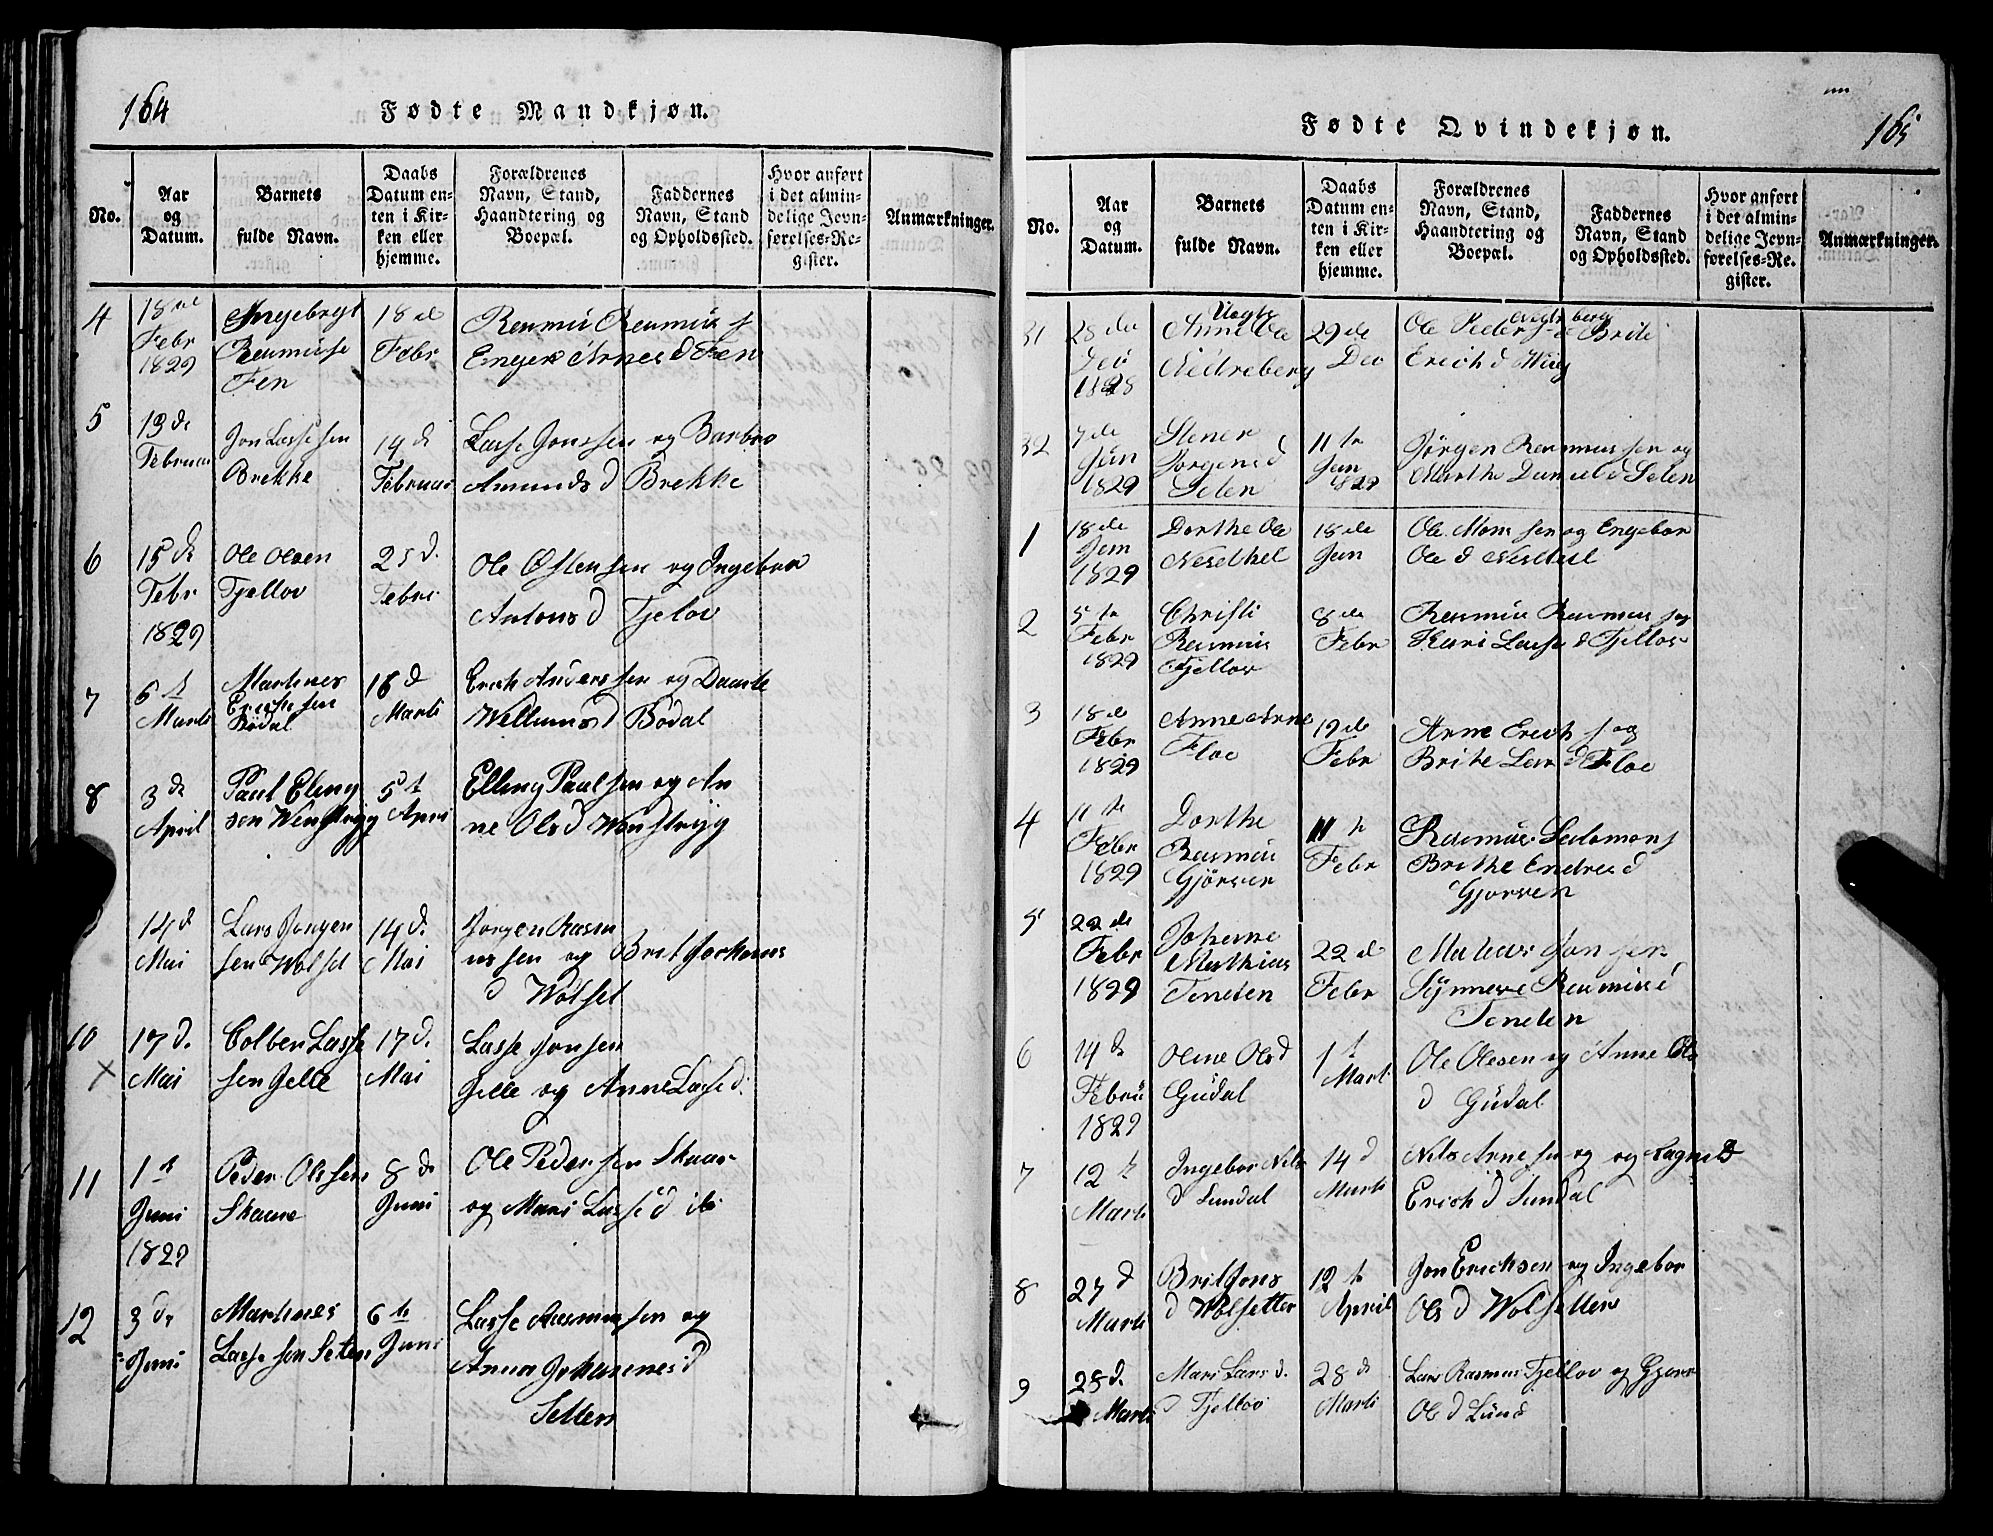 164
Fødte Mandkjøn.
No.
Aar
og
Datum.
Barnets
fulde Navn.
Daabs
Datum en-
ten i Kir-
ken eller
hjemme.
Forældrenes
Navn, Stand,
Haandtering og
Boepæl.
Faddernes
Navn, Stand
og Opholdssted.
Hvor anført
i det almin-
delige Jevn-
førelses-Re-
gister.
Anmærkninger.
4
18
Febr
1829
Ingebregt
Rasmuse
Fen
18 de
Febr
Rasmus Rasmus s
Arnes d Fen
5
13 de
Februar
Jon Lassesen
Brekke
14 d
Februar
Lasse Jonssen og Barbro
Amunds d Brekke
6
15 de
Febr
1829
Ole Olsen
Tjellov
25 d.
Febri
Ole Østensen og Ingebor
Antons d Tjelov
7
6 t
Marti
Martines
Erichsen
Bødal
16 d
Marti
Erich Anderssen og Daarte
Willums d Bødal
8
3 de
April
Paul Eling
sen
5 t
April
Elling Paulsen og An
ne Ols d
14 d
Mai
Lars Jørgen
sen Wolset
14 d.
Mai
Jørgen Rasm
ussen og Brit Jochums
d Wolset
10
17 d.
Mai
Colben Lasse
sen Jelle
17 d.
Mai
Lasse Jonsen
Jelle og Anne Lasse d.
11
1 t
Juni
1829
Peder Olssen
Skaare
8 de
Juni
Ole Pedersen Skaar
og Mari Lasse d ib
12
3 de
Juni
Martines
Lassesøn Seten
6 te
Juni
Lasse Rasmussen og
Anna Johannes d
Setten
165
Fødte Qvindekjøn.
No.
Aar
og
Datum.
Barnets
fulde Navn.
Daabs
Datum en-
ten i Kir-
ken eller
hjemme.
Forældrenes
Navn, Stand,
Haandtering og
Boepæl.
Faddernes
Navn, Stand
og Opholdssted.
Hvor anført
i det almin-
delige Jevn-
førelses-Re-
gister.
Anmærkninger.
31
28 de
1828
Anne Ole
Nedreberg
29 de
Ole Peder s Brite
Erich d
32
7 de
Jan
1829
Stener
Jørgens d
Selen
11 te
Jan
1829
Jørgen Rasmussen og
Marthe Daniel d Selen
1
18 de
Jan
1829
Dorthe Ole
Neselhel
18 de
Jan
Ole Monssen og Engebor
Ole d
2
5 te
Febr
1829
Christi
Rasmus
Tjellov
8 de
Febr
Rasmus Rasmus s og
Kari Lasse d Tjellov
3
18 de
Febr
1829
Anne Arne
Floe
19 de
Febr
Arne Erich s og
Brite Lar d Floe
4
11 te
Febr
1829
Dorthe
Rasmus
Gjørven
11 te
Febr
Rasmus Salomon s
Brithe Endres d
Gjørven
5
22 de
Febr
1829
Johanne
Mathias
Tenden
22 de
Febr
Matias Jonsen
Synneve Rasmus d
Tenden
6
14 de
Febru
1829
Oline Ols d
Gudal
1 t
Marti
Ole Olesen og Anne Ols
d Gudal
7
12 t
Marti
Ingebor Nils
d Sundal
14 d
Marti
Nils Arnesen og og Ragnild
Erich d Sundal
8
27 d
Marti
Brit Jons
d Wolsetter
12 te
April
Jon Erichsen og Ingebor
Ols d Wolsetter
9
28 d.
Marti
Mari Lars d.
d Tjellov
28 de
Marti
Lars Rasmus Tjellov og
Ols d Lund